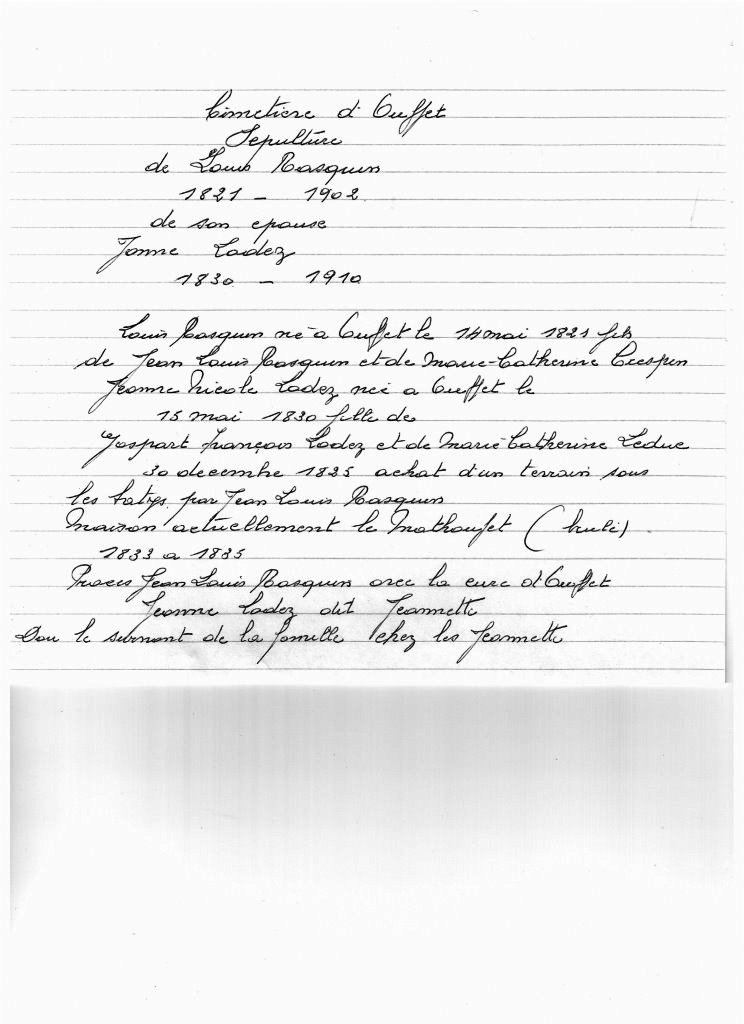 Cimetiere d'Ouffet
Sepulture
de Louis Rasquin
1821 - 1902
de son epouse
Jonne Ladez
1830 - 1910
Louis Rasquin né a Ouffet le 14 mai 1821 fils
de Jean Louis Rasquin et de Marie-Catherine Crespin
Jeanne Nicole Ladez née a Ouffet le
15 mai 1830 fille de
Jaspart François Ladez et de Marie Catherine Leduc
30 decembre 1825 achat d'un terrain sous
les par Jean Louis Rasquin
Maison actuellement le (brulé)
1833 a 1835
Proces Jean Louis Rasquin avec la cure d'Ouffet
Jeanne Ladez dit Jeannette
Dou le surnont de la famille chez les Jeannette